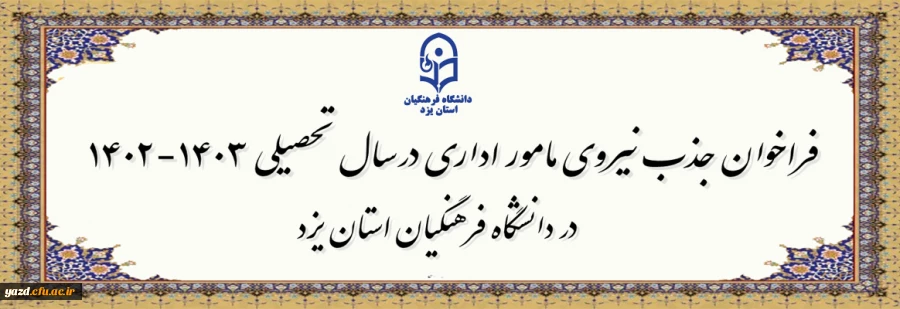 دانشگاه فرهنگیان
استان یزد
فراخوان جذب نیروی مامور اداری در سال تحصیلی ۱۴۰۳-۱۴۰۲
در دانشگاه فرهنگیان استان یزد
yazd.cfu.ac.ir